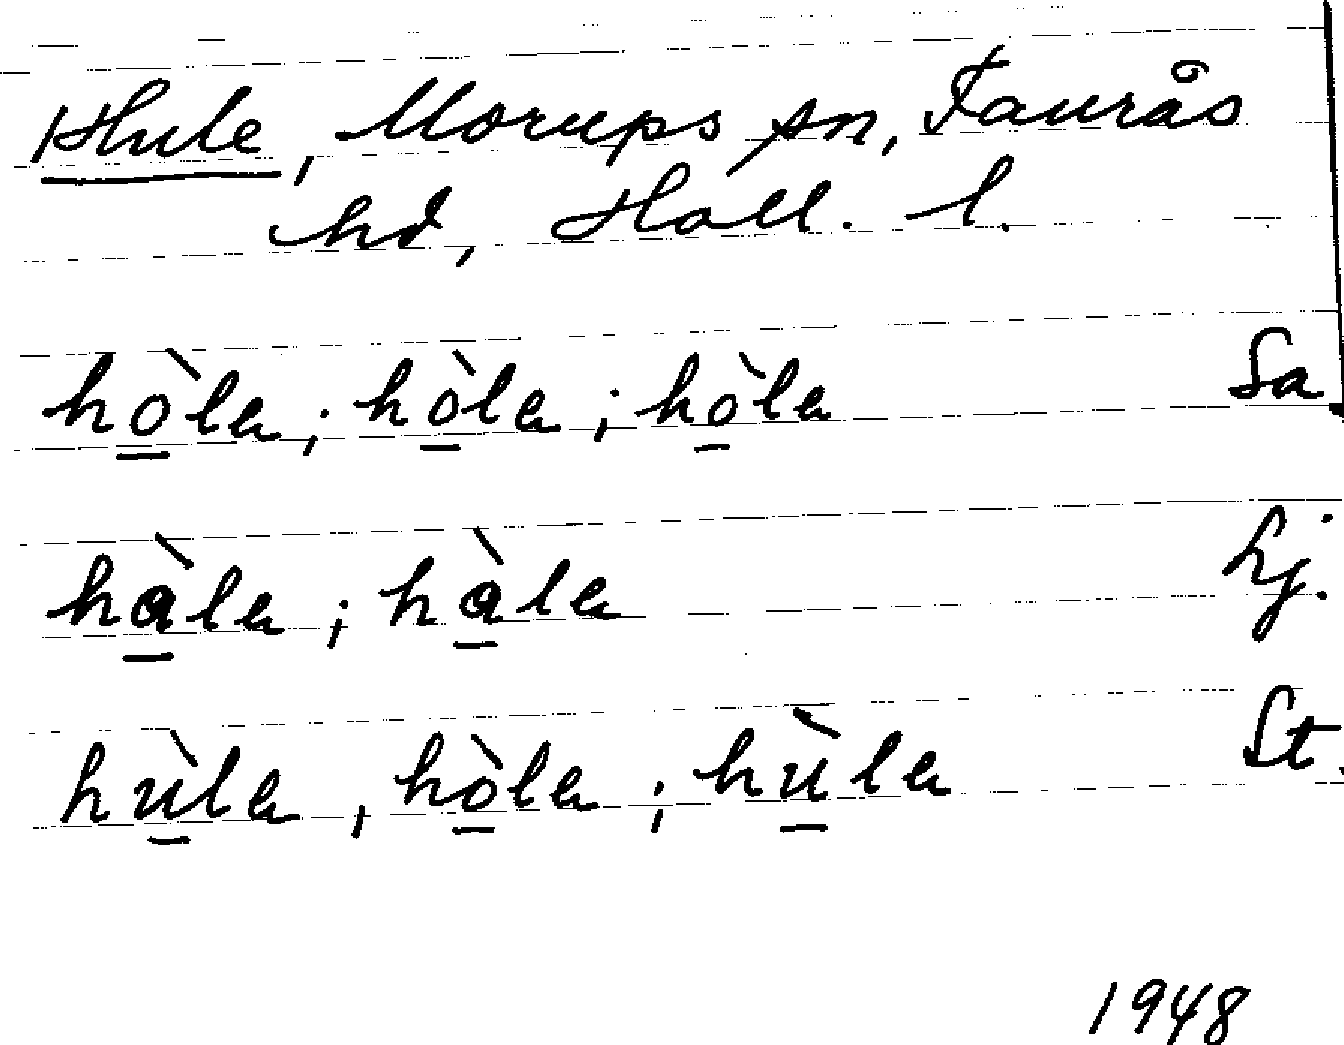 Hule, Morups sn, Faurås
hd, Hall. l.
hòla; hòla; hòla Sa.
hàla; hàla Lj.
hùla, hòla; hùla St.
1948